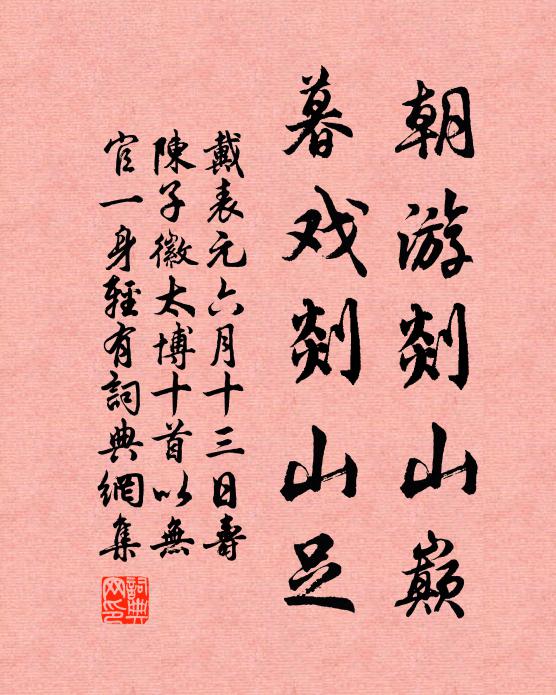 朝游剡山巅
暮戏剡山足
戴表元六月十三日壽
陳子徽太博十首以無
官一身輕有詞典網集
詞典網印